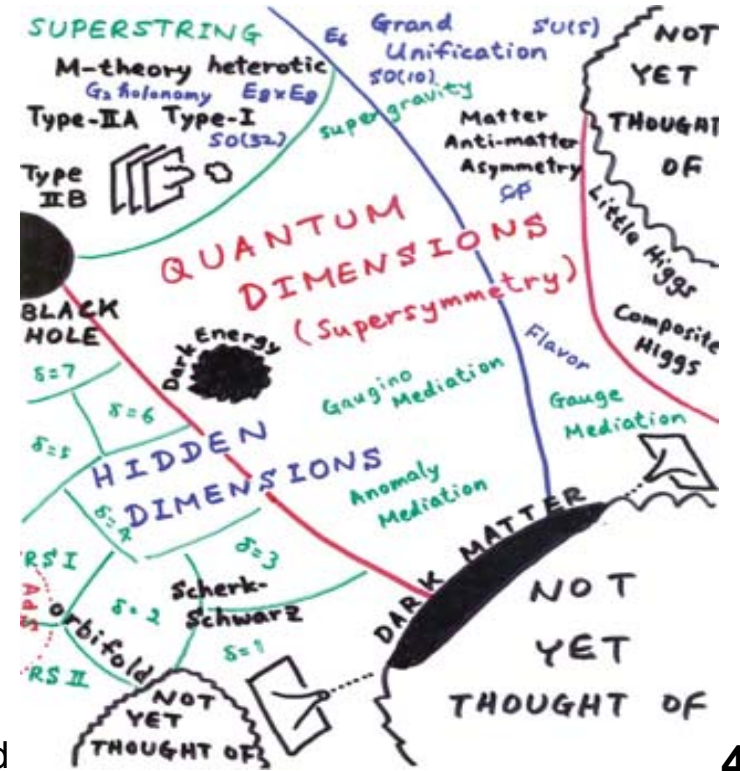 SUPERSTRING
M-theory heterotic
G2 holonomy E8xE8
Type-IIA Type-I
SO(32)
Type
IIB
E6 Grand SU(5)
Unification
SO(10)
supergravity
Matter
Anti-matter
Asymmetry
CP
NOT
YET
THOUGHT
OF
Little Higgs
Composite
Higgs
QUANTUM
DIMENSIONS
(Supersymmetry)
BLACK
HOLE
Dark Energy
Flavor
Gaugino
Mediation
Gauge
Mediation
δ=7
δ=6
δ=5
HIDDEN
DIMENSIONS
δ=4
Anomaly
Mediation
δ=3
DARK MATTER
RS I
AdS
orbifold
δ=2
Scherk-
Schwarz
δ=1
RS II
NOT
YET
THOUGHT OF
NOT
YET
THOUGHT OF
d
4